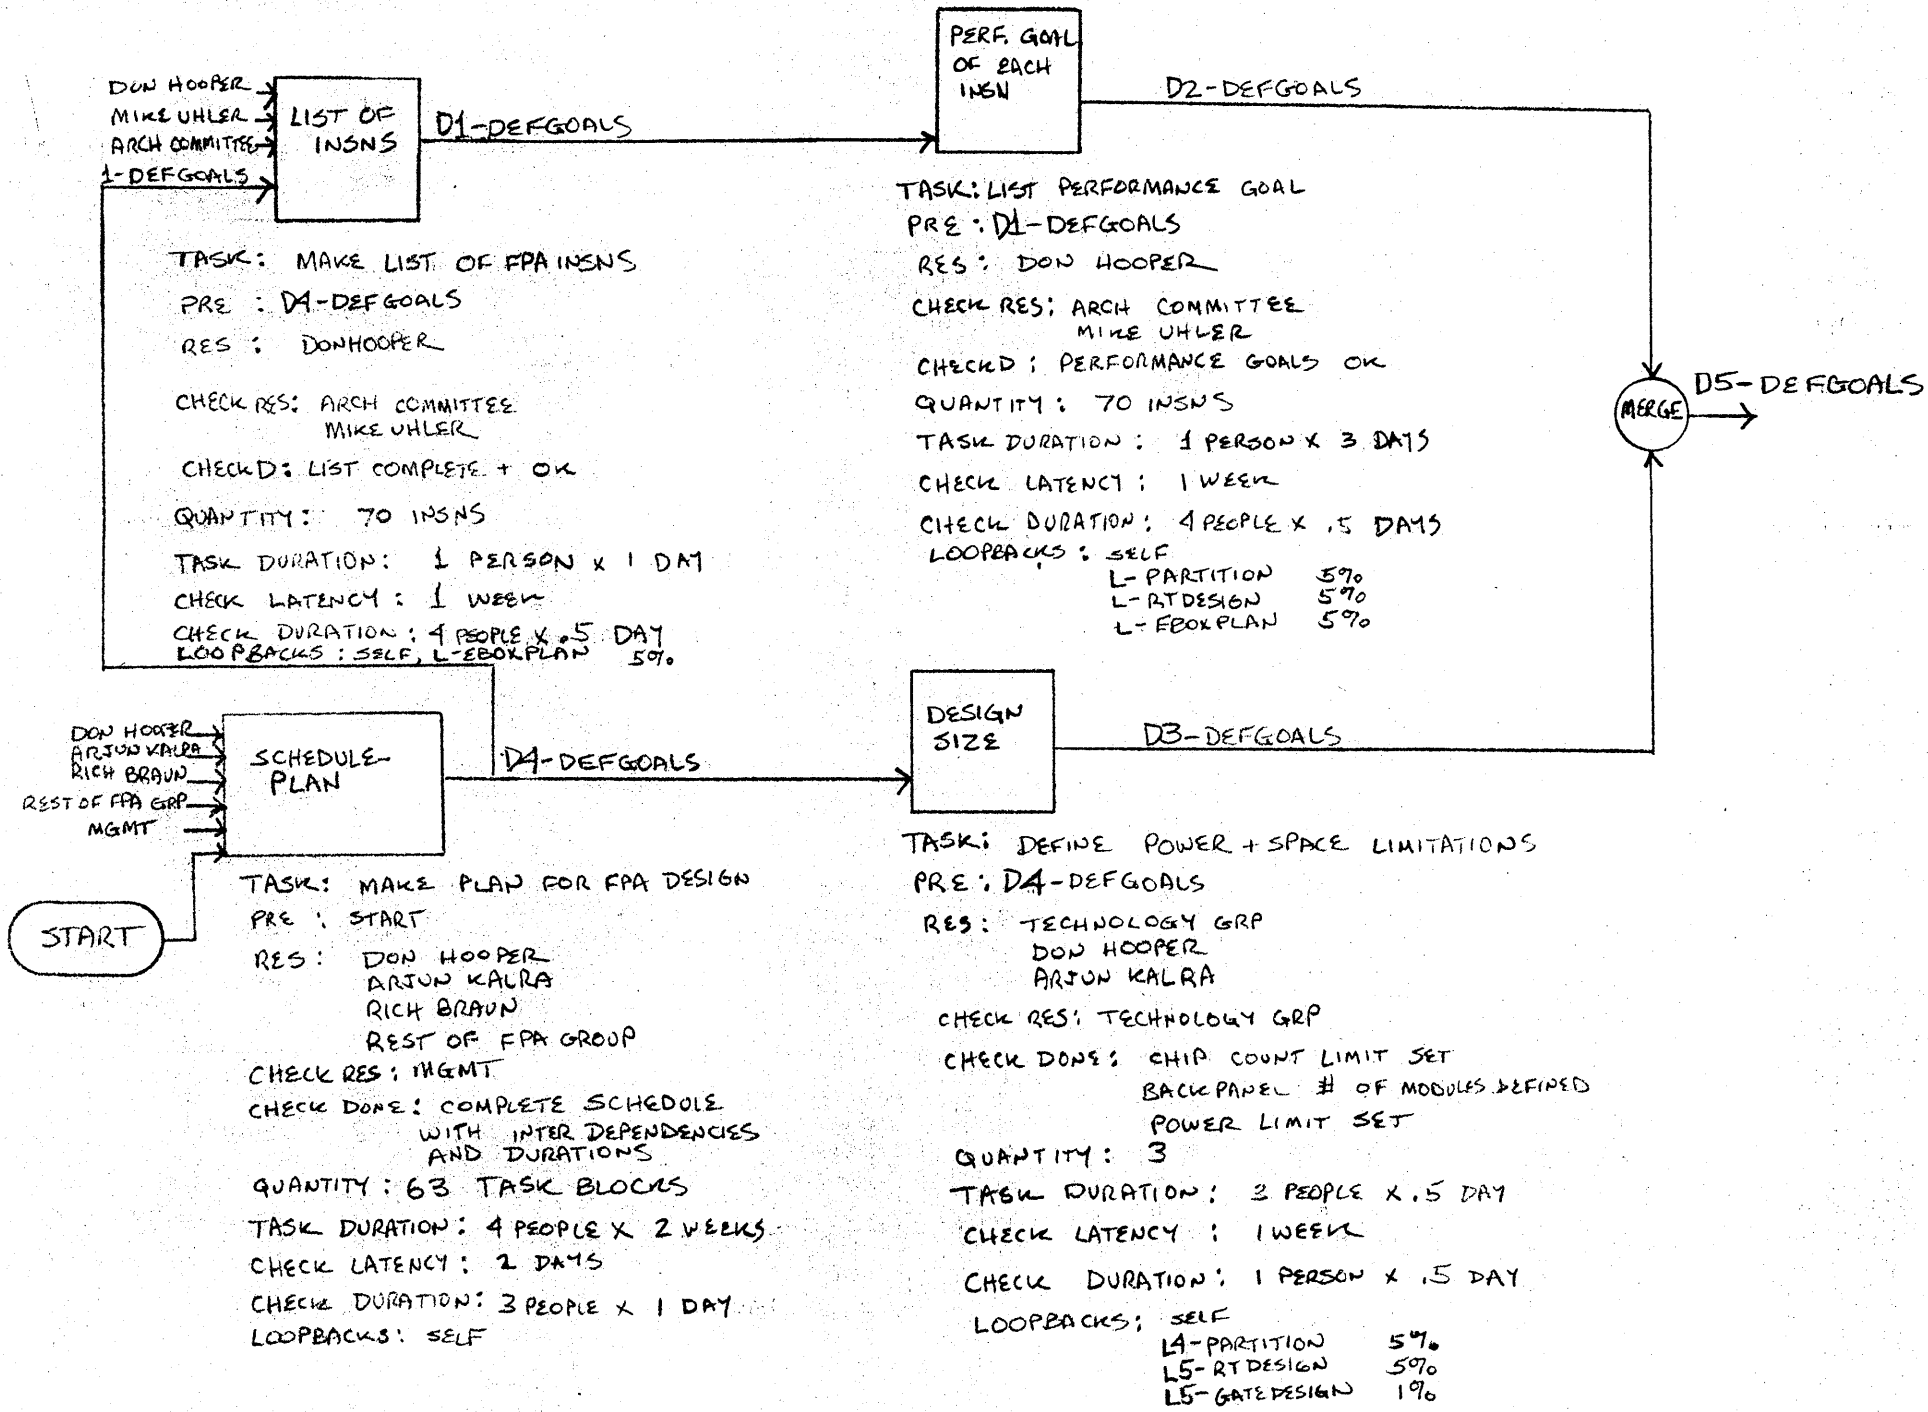 DON HOOPER
MIKE UHLER
ARCH COMMITTEE
1-DEFGOALS
LIST OF
INSNS
D1-DEFGOALS
TASK: MAKE LIST OF FPA INSNS
PRE : D4-DEFGOALS
RES : DON HOOPER
CHECK RES: ARCH COMMITTEE
MIKE UHLER
CHECKD: LIST COMPLETE + OK
QUANTITY: 70 INSNS
TASK DURATION: 1 PERSON X 1 DAY
CHECK LATENCY: 1 WEEK
CHECK DURATION: 4 PEOPLE X .5 DAY
LOOPBACKS: SELF, L-EBOXPLAN 5%
PERF. GOAL
OF EACH
INSN
D2-DEFGOALS
TASK: LIST PERFORMANCE GOAL
PRE : D1-DEFGOALS
RES : DON HOOPER
CHECK RES: ARCH COMMITTEE
MIKE UHLER
CHECKD: PERFORMANCE GOALS OK
QUANTITY: 70 INSNS
TASK DURATION: 1 PERSON X 3 DAYS
CHECK LATENCY: 1 WEEK
CHECK DURATION: 4 PEOPLE X .5 DAYS
LOOPBACKS: SELF
L-PARTITION 5%
L-RTDESIGN 5%
L-EBOXPLAN 5%
MERGE
D5-DEFGOALS
DON HOOPER
ARJUN KALRA
RICH BRAUN
REST OF FPA GRP
MGMT
START
SCHEDULE-
PLAN
D4-DEFGOALS
TASK: MAKE PLAN FOR FPA DESIGN
PRE : START
RES : DON HOOPER
ARJUN KALRA
RICH BRAUN
REST OF FPA GROUP
CHECK RES: MGMT
CHECK DONE: COMPLETE SCHEDULE
WITH INTER DEPENDENCIES
AND DURATIONS
QUANTITY: 63 TASK BLOCKS
TASK DURATION: 4 PEOPLE X 2 WEEKS
CHECK LATENCY: 2 DAYS
CHECK DURATION: 3 PEOPLE X 1 DAY
LOOPBACKS: SELF
DESIGN
SIZE
D3-DEFGOALS
TASK: DEFINE POWER + SPACE LIMITATIONS
PRE : D4-DEFGOALS
RES: TECHNOLOGY GRP
DON HOOPER
ARJUN KALRA
CHECK RES: TECHNOLOGY GRP
CHECK DONE: CHIP COUNT LIMIT SET
BACKPANEL # OF MODULES DEFINED
POWER LIMIT SET
QUANTITY: 3
TASK DURATION: 3 PEOPLE X .5 DAY
CHECK LATENCY : 1 WEEK
CHECK DURATION: 1 PERSON X .5 DAY
LOOPBACKS: SELF
L4-PARTITION 5%
L5-RTDESIGN 5%
L5-GATEDESIGN 1%